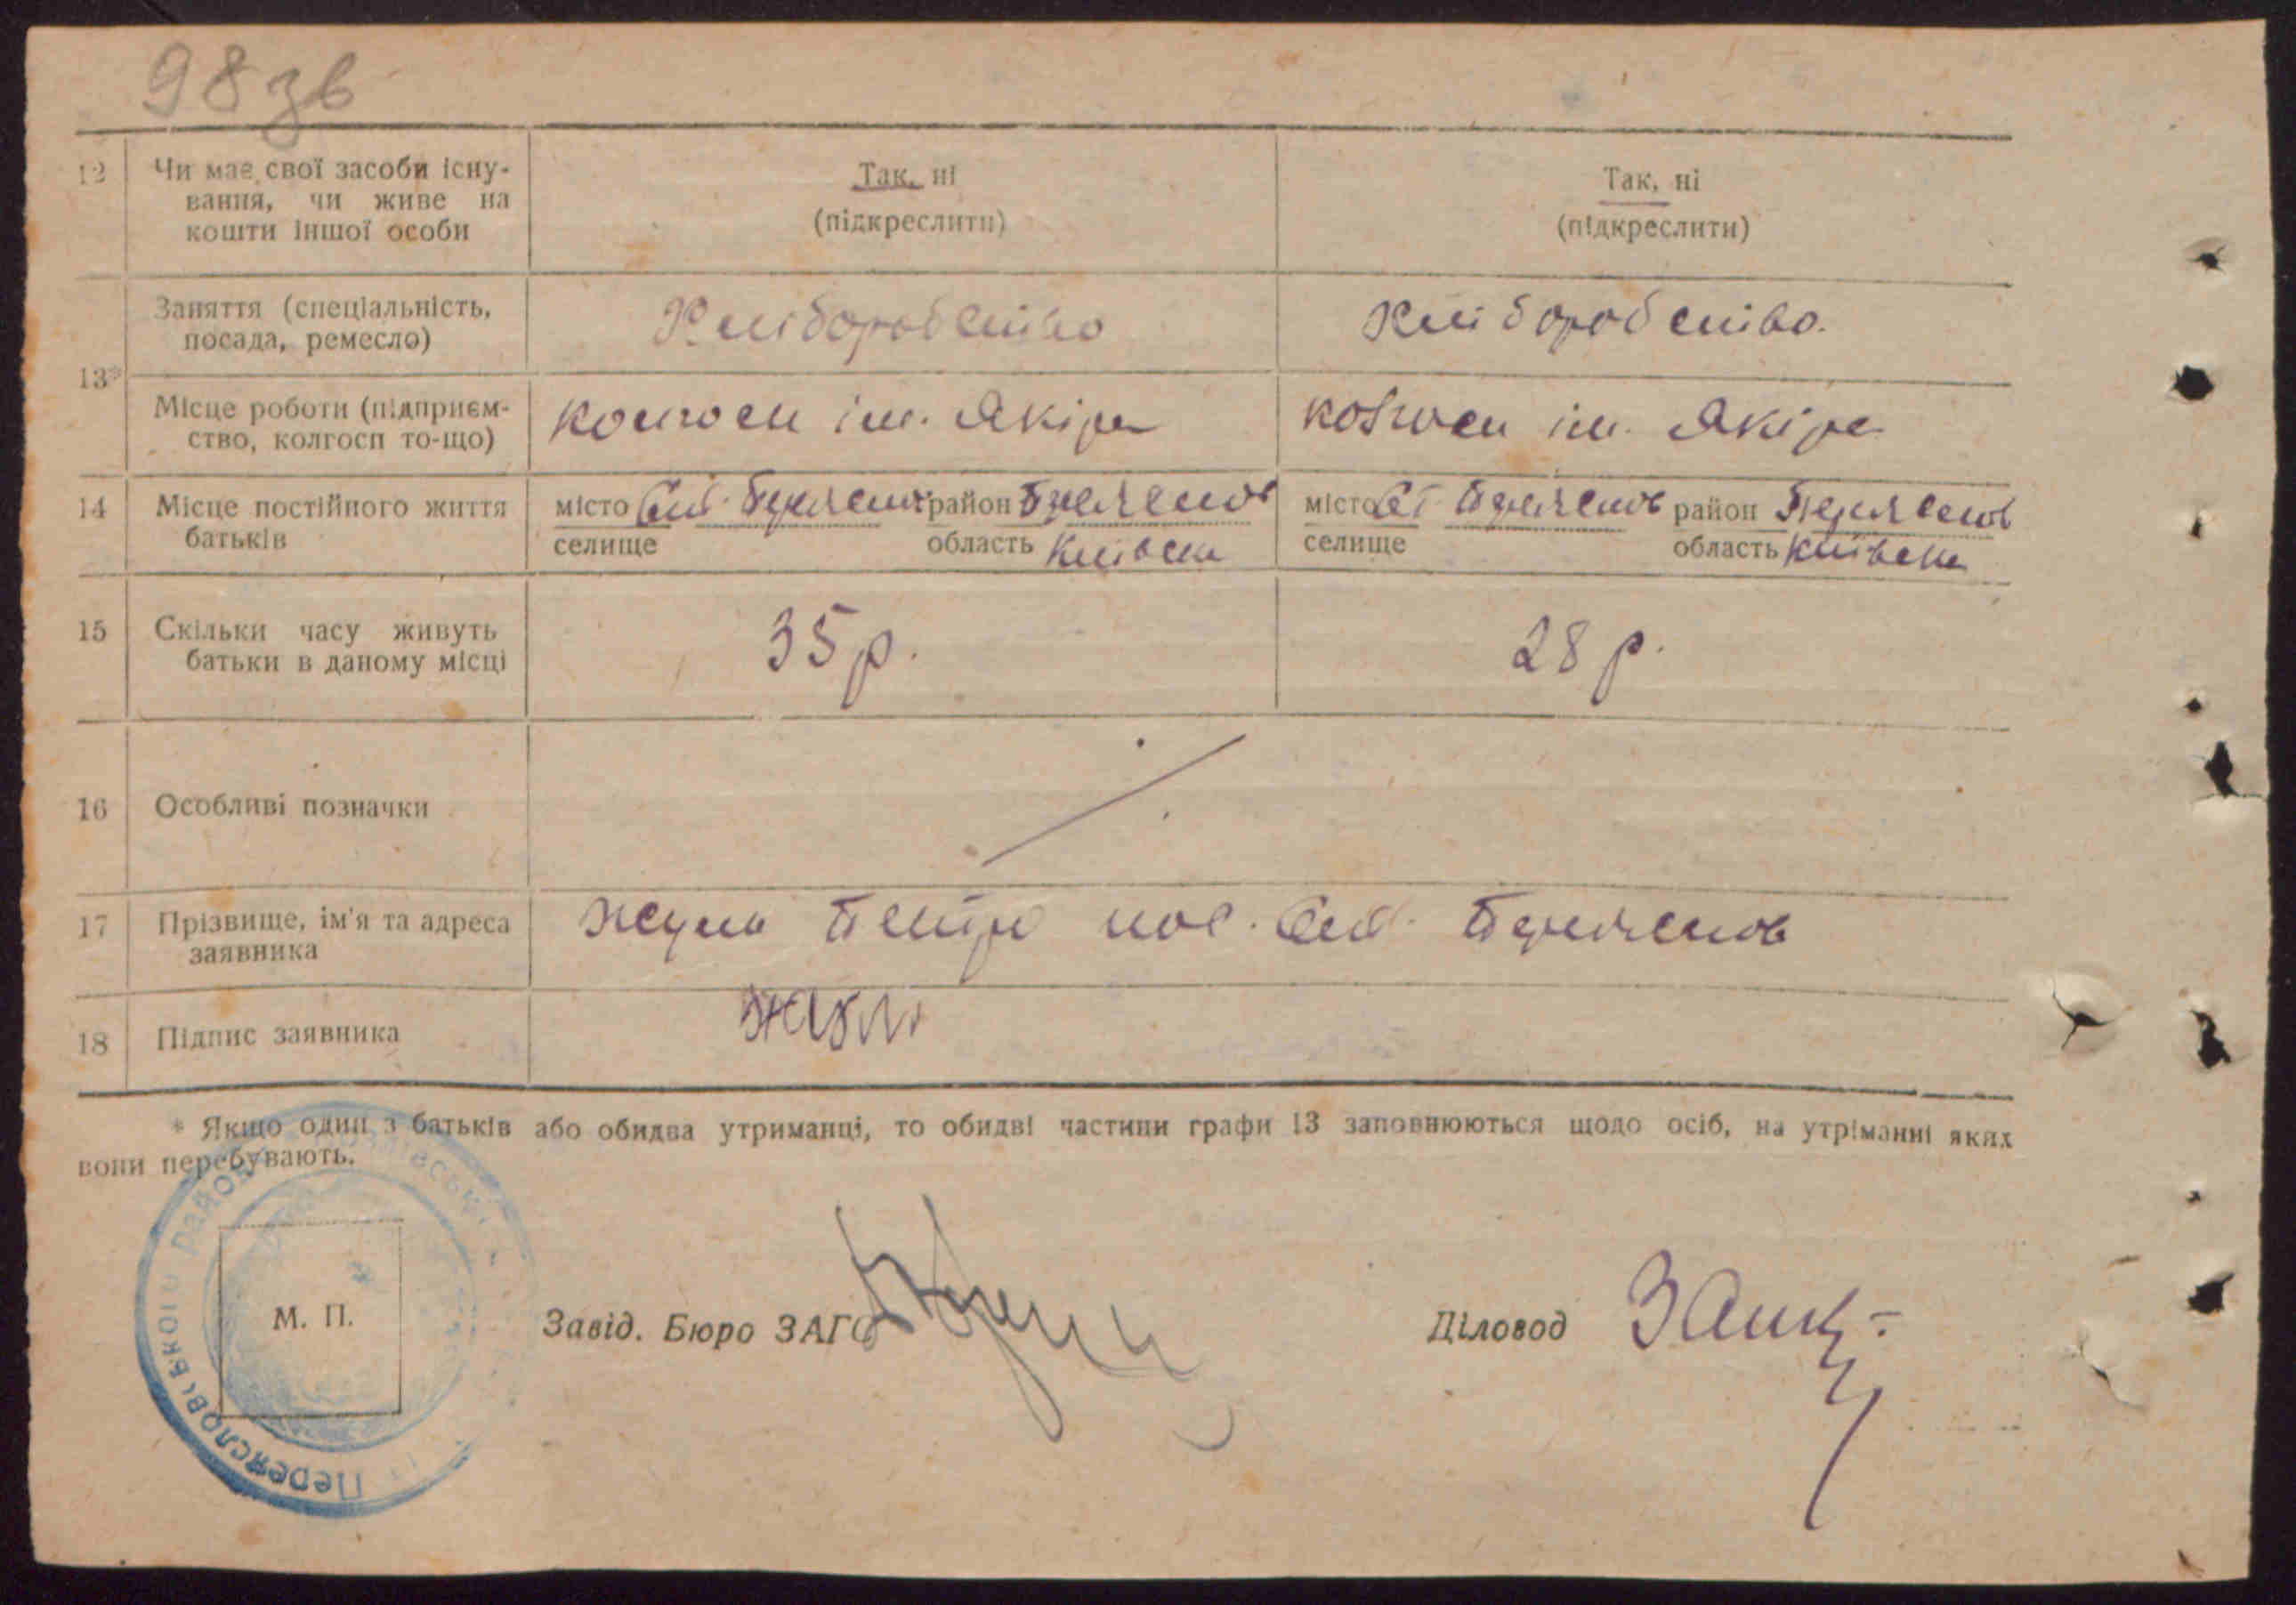 98 зв
12 Чи має свої засоби існу- Так, ні Так, ні
вання, чи живе на (підкреслити) (підкреслити)
кошти іншої особи
13* Заняття (спеціальність, Хліборобство Хліборобство.
посада, ремесло)
Місце роботи (підприєм- колгосп ім. Якіра колгосп ім. Якіра
ство, колгосп то-що)
14 Місце постійного життя місто Переяслов район Переяслов місто Переяслов район Переяслов
батьків селище область Київськ селище область Київськ
15 Скільки часу живуть 35 р. 28 р.
батьки в даному місці
16 Особливі позначки
17 Прізвище, ім'я та адреса Петро Переяслов
заявника
18 Підпис заявника
* Якщо один з батьків або обидва утриманці, то обидві частини графи 13 заповнюються щодо осіб, на утріманні яких
вони перебувають.
Переяславського район
М. П.
Завід. Бюро ЗАГС Діловод